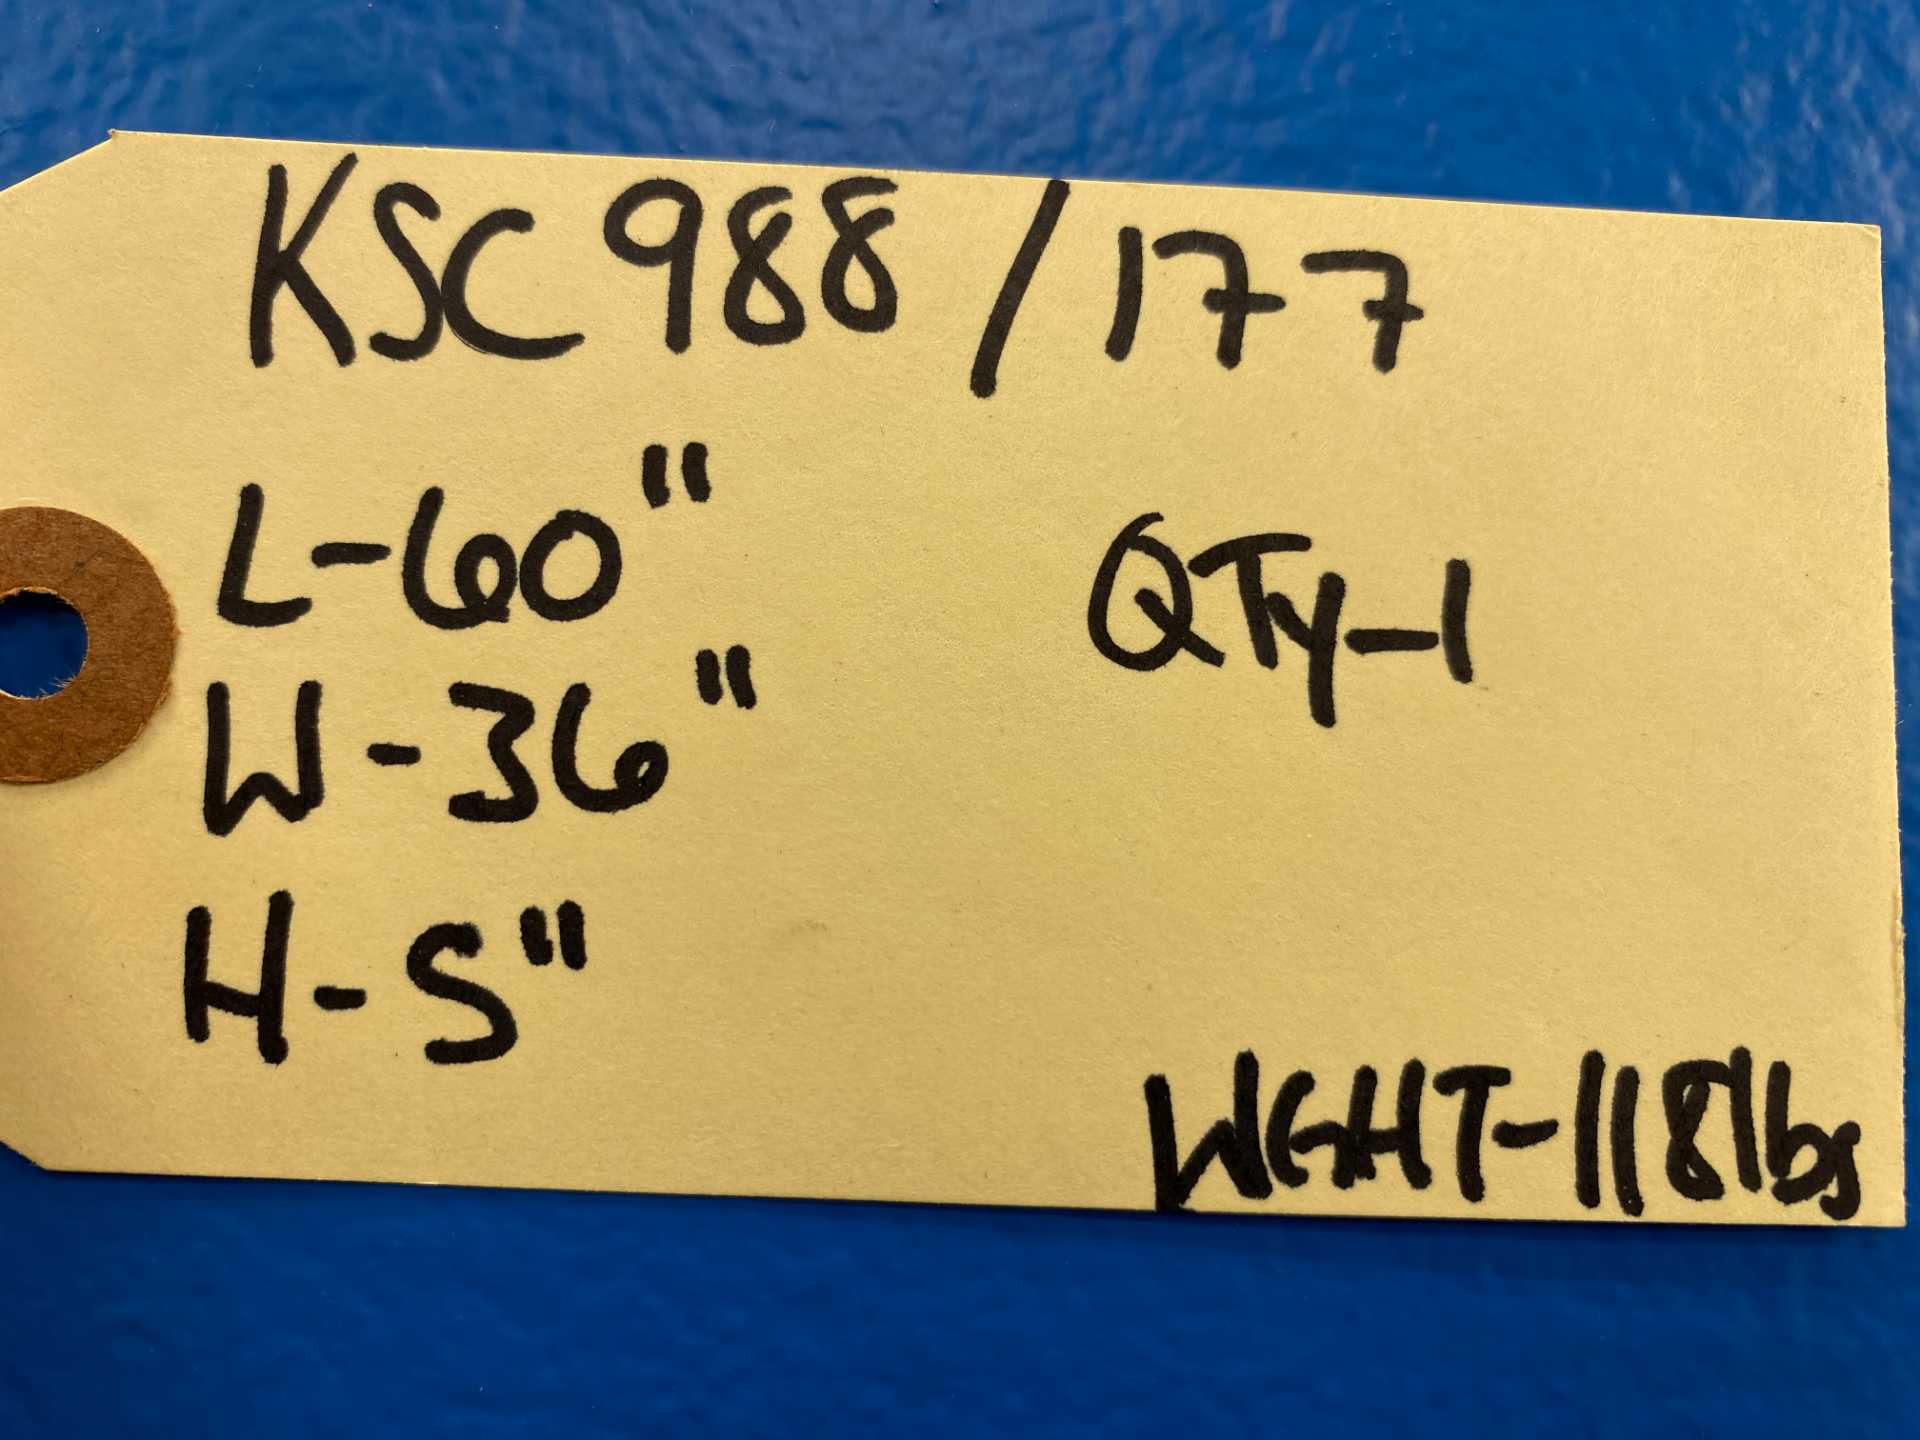 KSC 988 / 177
L-60"
QTy-1
W-36"
H-5"
WGHT-118lbs